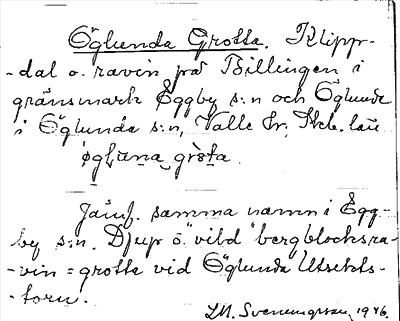 Öglunda Grotta. Klipp-
-dal o. ravin på Billingen i
gränsmark Eggby s:n och Öglunda
i Öglunda s:n, Valle hr, Skb. län
øgluna grota.
Jämf. samma namn i Egg-
by s:n. Djup o. "vild" bergblocksra-
-vin = grotta vid Öglunda Utsikts-
-torn.
1946.